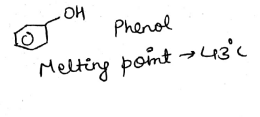 OH
Phenol
Melting point → 43°C